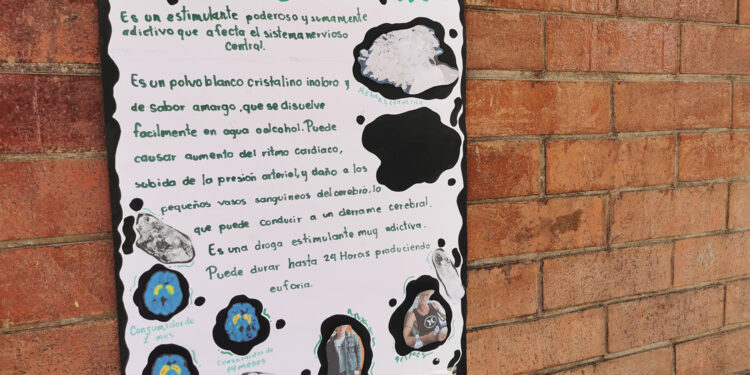 Es un estimulante poderoso y sumamente
adictivo que afecta el sistema nervioso
central.
Metanfetamina
Es un polvo blanco cristalino inoloro y
de sabor amargo, que se disuelve
facilmente en agua oalcohol. Puede
causar aumento del ritmo cardiaco,
subida de la presión arterial, y daño a los
pequeños vasos sanguineos del cerebro, lo
que puede conducir a un derrame cerebral.
Es una droga estimulante muy adictiva.
Puede durar hasta 24 Horas produciendo
euforia.
Consumidor de
1 mes
Consumidor de
14 meses
Antes
Despues